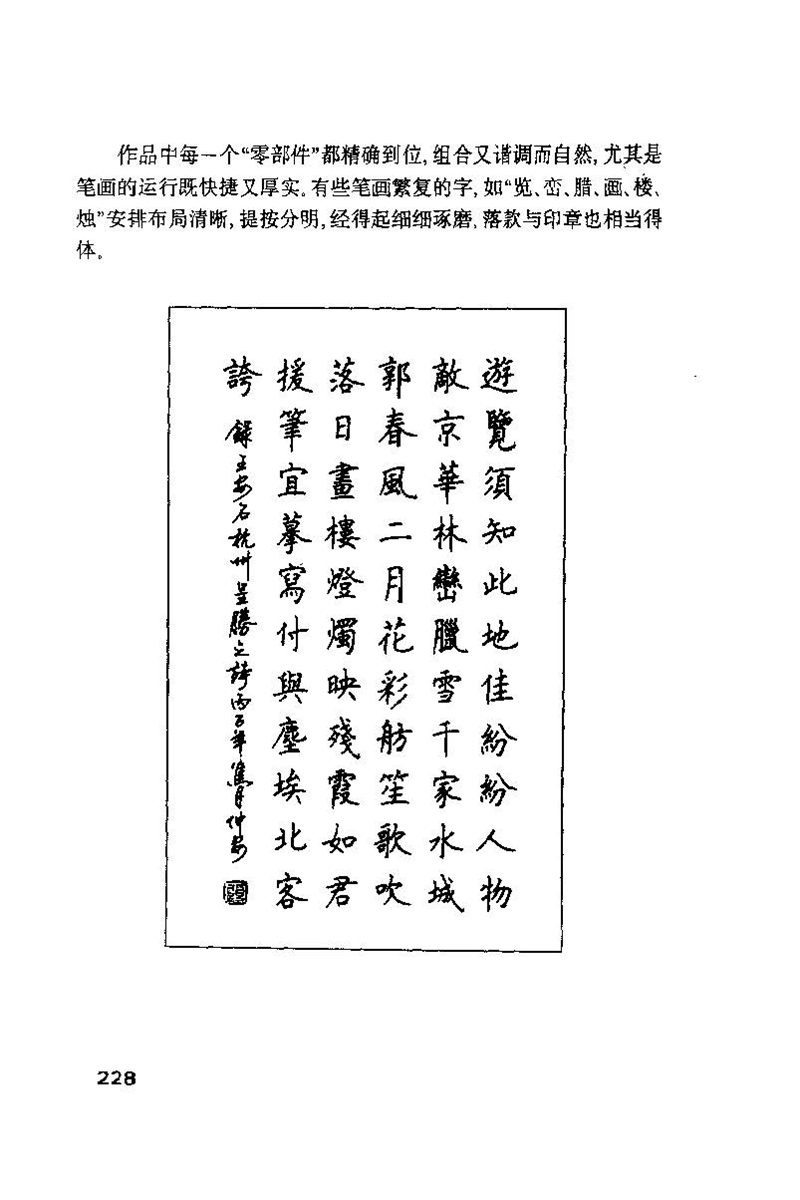 作品中每一个“零部件”都精确到位,组合又谐调而自然,尤其是
笔画的运行既快捷又厚实。有些笔画繁复的字,如“览、峦、腊、画、楼、
烛”安排布局清晰,提按分明,经得起细细琢磨,落款与印章也相当得
体。
遊覽須知此地佳紛紛人物
敵京華林巒臘雪千家水城
郭春風二月花彩舫笙歌吹
落日畫樓燈燭映殘霞如君
援筆宜摹寫付與塵埃北客
誇 錄王安石杭州呈勝之詩丙子年
228